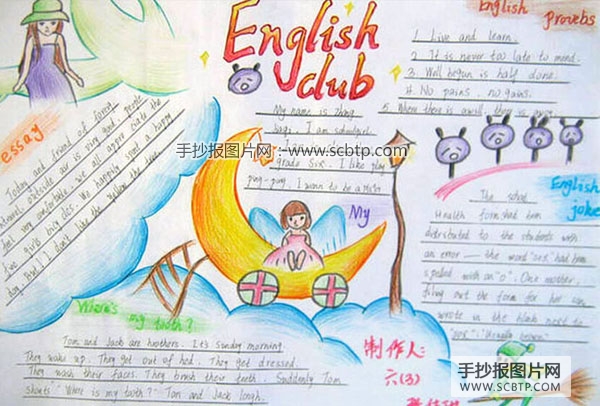 English club
English Proverbs
1. Live and learn.
2. It is never too late to mend.
3. Well begun is half done.
4. No pains, no gains.
5. Where there is a will, there is
My name is Zhang
I am schoolgirl
grade six. I like play
ping-pong. I wan to be a
My
手抄报图片网:www.scbtp.com
essay
Today and friend of forest
travel outside air is very good. people
feel very comfortable. we all
five girls
day. But I don't like the
English joke
The school
Health form had been
distributed to the students with
an error - the word "sex" had been
spelled with an "o". One mother,
filing out the form for her son,
wrote in the blank next to
"sox": "Usually brown."
Where's my tooth?
Tom and Jack are brothers. It's Sunday morning.
They wake up. They get out of bed. They get dressed.
They wash their faces. They brush their teeth. Suddenly Tom
shouts "Where is my tooth?" Tom and Jack
制作人:
六(3)
手抄报图片网
WWW.SCBTP.COM